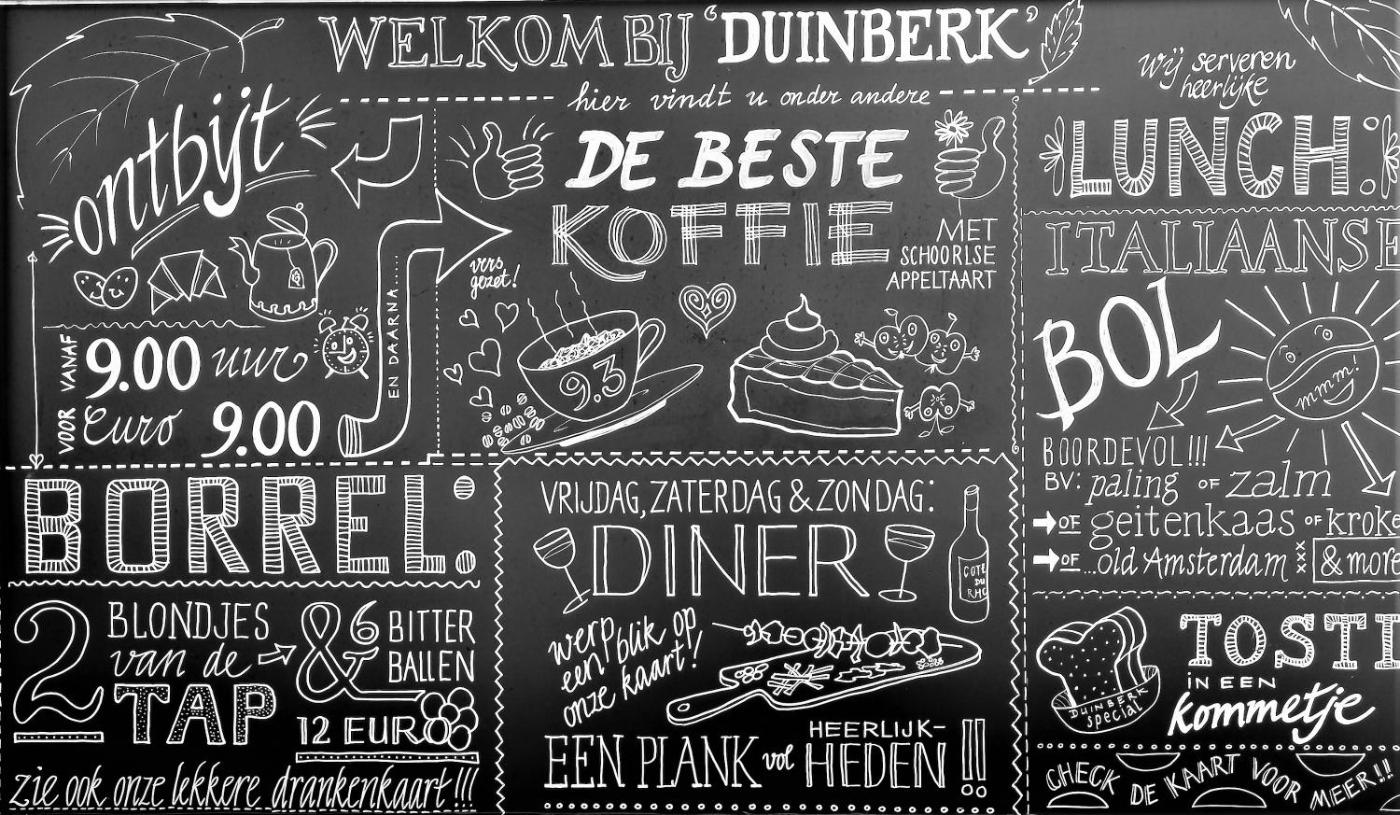 WELKOM BIJ 'DUINBERK'
hier vindt u onder andere
ontbijt
VANAF 9.00 uur
VOOR Euro 9.00
EN DAARNA....
DE BESTE
KOFFIE
MET
SCHOORLSE
APPELTAART
vers
gezet!
9.3
wij serveren
heerlijke
LUNCH:
ITALIAANSE
BOL
mmm!
BOORDEVOL!!!
BV: paling OF zalm
OF geitenkaas OF kroke
OF...old Amsterdam xxx & more
TOSTI
IN EEN
kommetje
DUINBERK
special
CHECK DE KAART VOOR MEER!!
BORREL:
2 BLONDJES
van de
TAP
& 6 BITTER
BALLEN
12 EURO
zie ook onze lekkere drankenkaart!!!
VRIJDAG, ZATERDAG & ZONDAG:
DINER
COTE
DU
RHO
werp
een blik op
onze kaart!
EEN PLANK vol HEERLIJK-
HEDEN!!